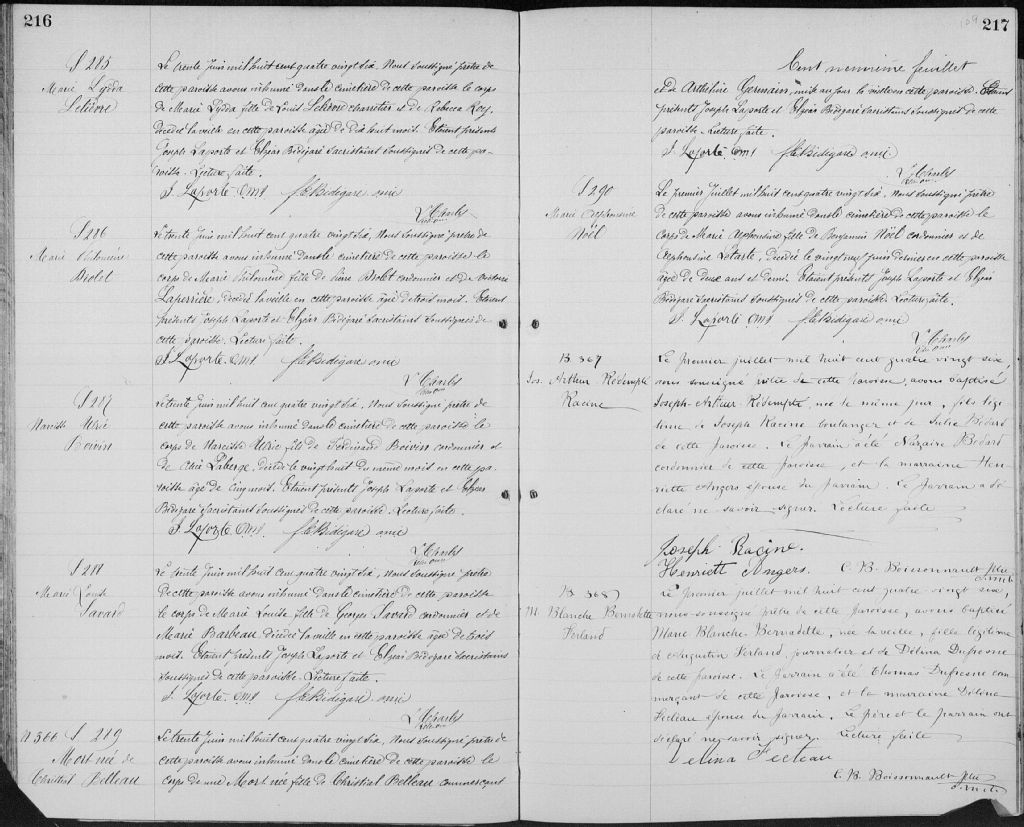 216
S 285
Marie Lydia
Lelièvre
Le trente Juin mil huit cent quatre vingt six, Nous soussigné prêtre de
cette paroisse avons inhumé dans le cimetière de cette paroisse le corps
de Marie Lydia fille de Louis Lelièvre charretier et de Rebecca Roy,
décédée la veille en cette paroisse âgée de dix huit mois. Etaient présents
Joseph Laporte et Elzéar Bédigaré sacristains soussignés de cette pa-
roisse. Lecture faite.
J. Laporte. f.le Bédigare
Chs
S 286
Marie Philomène
Drolet
Le trente Juin mil huit cent quatre vingt six, Nous soussigné prêtre de
cette paroisse avons inhumé dans le cimetière de cette paroisse le
corps de Marie Philomène fille de Drolet cordonnier et de
Laperrière, décédée la veille en cette paroisse âgée de trois mois. Etaient
présents Joseph Laporte et Elzéar Bédigaré sacristains soussignés de
cette paroisse. Lecture faite.
J. Laporte. f.le Bédigare
S 287
Narcisse
Boivin
Le trente Juin mil huit cent quatre vingt six, Nous soussigné prêtre de
cette paroisse avons inhumé dans le cimetière de cette paroisse le
corps de Narcisse fils de Ferdinand Boivin cordonnier et
de Laberge, décédé le vingt huit du même mois en cette pa-
roisse âgé de cinq mois. Etaient présents Joseph Laporte et Elzéar
Bédigaré sacristains soussignés de cette paroisse. Lecture faite.
J. Laporte. f.le Bédigare
S 288
Marie Louise
Savard
Le trente Juin mil huit cent quatre vingt six, Nous soussigné prêtre
de cette paroisse avons inhumé dans le cimetière de cette paroisse
le corps de Marie Louise fille de Georges Savard cordonnier et de
Marie Barbeau décédée la veille en cette paroisse âgée de trois
mois. Etaient présents Joseph Laporte et Elzéar Bédigaré sacristains
soussignés de cette paroisse. Lecture faite.
J. Laporte. f.le Bédigare
B 366 S 289
Mort née de
Christial Belleau
Le trente Juin mil huit cent quatre vingt six, Nous soussigné prêtre de
cette paroisse avons inhumé dans le cimetière de cette paroisse le
corps de une Mort née fille de Christial Belleau commerçant
109
217
Cent neuvième feuillet
et de Arthéline Germain, née au jour la veille en cette paroisse. Etaient
présents Joseph Laporte et Elzéar Bédigaré sacristains soussignés de cette
paroisse. Lecture faite.
J. Laporte. f.le Bédigare
S 290
Marie Alphonsine
Noël
Le premier Juillet mil huit cent quatre vingt six, Nous soussigné prêtre
de cette paroisse avons inhumé dans le cimetière de cette paroisse le
corps de Marie Alphonsine fille de Benjamin Noël cordonnier et de
Alphonsine Letarte, décédée le vingt neuf Juin dernier en cette paroisse
âgée de deux ans et demi. Etaient présents Joseph Laporte et Elzéar
Bédigaré sacristains soussignés de cette paroisse. Lecture faite.
J. Laporte. f.le Bédigare
B 367
Jos. Arthur Rédempté
Racine
Le premier juillet mil huit cent quatre vingt six,
nous soussigné prêtre de cette paroisse, avons baptisé
Joseph-Arthur-Rédempté, né le même jour, fils légi-
time de Joseph Racine boulanger et de Julie Bédard
de cette paroisse. Le parrain a été Nazaire Bédard
cordonnier de cette paroisse, et la marraine Hen-
riette Angers épouse du parrain. Le parrain a dé-
claré ne savoir signer. Lecture faite
Joseph Racine.
Henriett Angers. C. B. Boissonnault Ptre
o.m.i.
B 368
M. Blanche Bernadette
Ferland
Le premier juillet mil huit cent quatre vingt six,
nous soussigné prêtre de cette paroisse, avons baptisé
Marie Blanche Bernadette, née la veille, fille légitime
de Augustin Ferland, journalier et de Délina Dufresne
de cette paroisse. Le parrain a été Thomas Dufresne com-
merçant de cette paroisse, et la marraine Délina
Fecteau épouse du parrain. Le père et le parrain ont
déclaré ne savoir signer. Lecture faite
Delina Fecteau
C. B. Boissonnault Ptre
o.m.i.